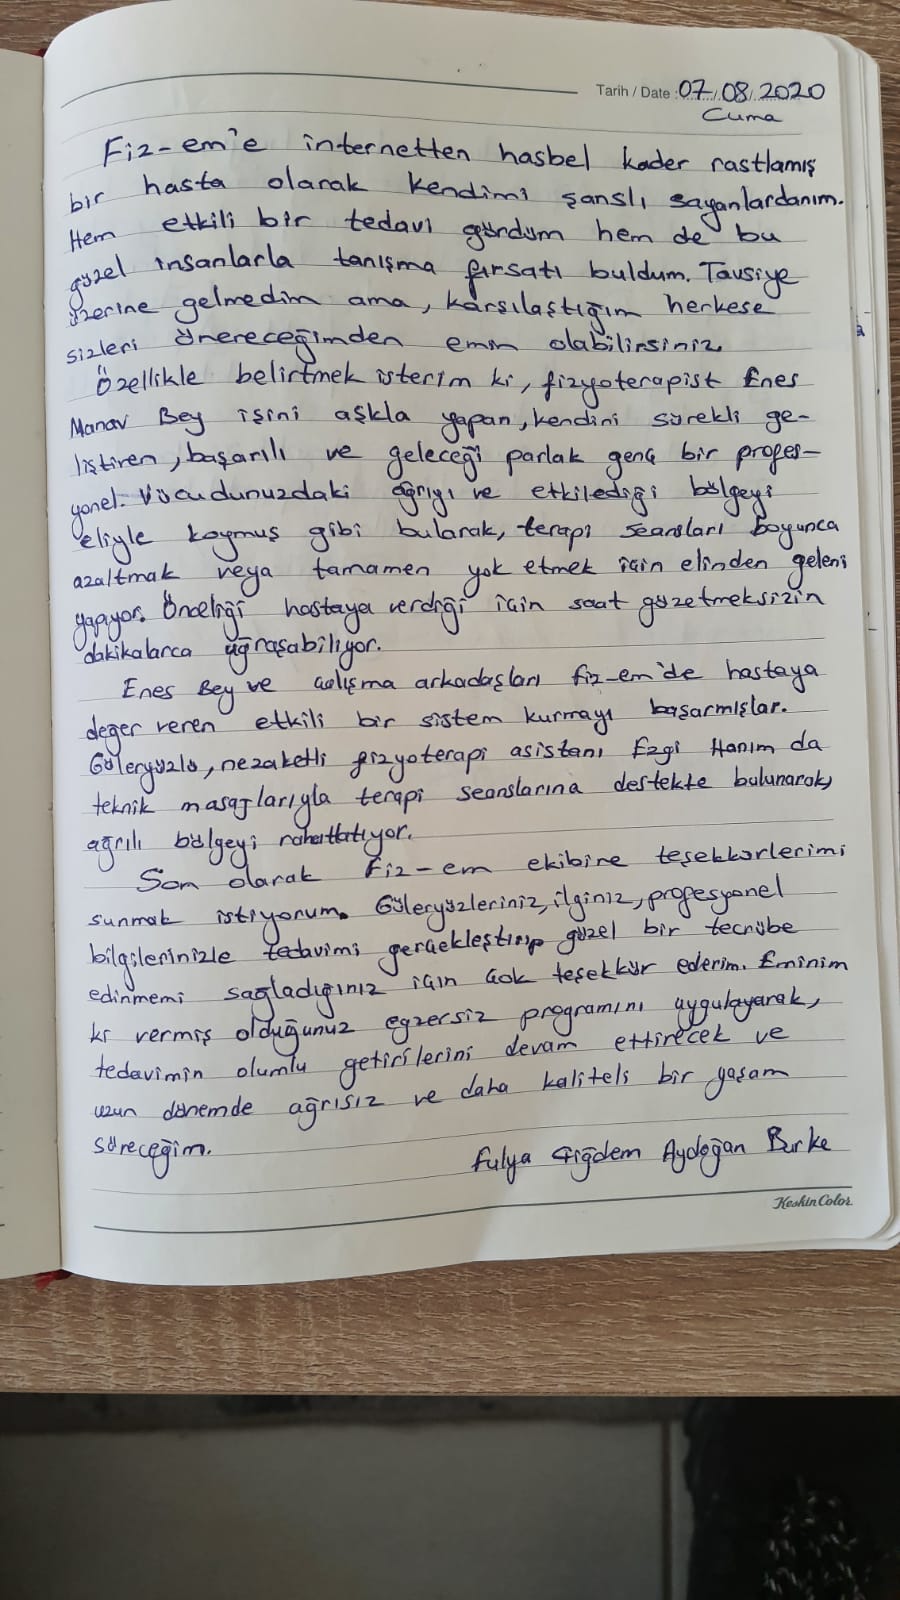 Tarih / Date : 07/08/2020
Cuma
Fiz-em'e internetten hasbel kader rastlamış
bir hasta olarak kendimi şanslı sayanlardanım.
Hem etkili bir tedavi gördüm hem de bu
güzel insanlarla tanışma fırsatı buldum. Tavsiye
üzerine gelmedim ama, karşılaştığım herkese
sizleri önereceğimden emin olabilirsiniz.
Özellikle belirtmek isterim ki, fizyoterapist Enes
Manav Bey işini aşkla yapan, kendini sürekli ge-
liştiren, başarılı ve geleceği parlak genç bir profes-
yonel. Vücudunuzdaki ağrıyı ve etkilediği bölgeyi
eliyle koymuş gibi bularak, terapi seansları boyunca
azaltmak veya tamamen yok etmek için elinden geleni
yapıyor. Önceliği hastaya verdiği için saat gözetmeksizin
dakikalarca uğraşabiliyor.
Enes Bey ve çalışma arkadaşları fiz-em'de hastaya
değer veren etkili bir sistem kurmayı başarmışlar.
Güleryüzlü, nezaketli fizyoterapi asistanı Ezgi Hanım da
teknik masajlarıyla terapi seanslarına destekte bulunarak,
ağrılı bölgeyi rahatlatıyor.
Son olarak Fiz-em ekibine teşekkürlerimi
sunmak istiyorum. Güleryüzleriniz, ilginiz, profesyonel
bilgilerinizle tedavimi gerçekleştirip güzel bir tecrübe
edinmemi sağladığınız için çok teşekkür ederim. Eminim
ki vermiş olduğunuz egzersiz programını uygulayarak,
tedavimin olumlu getirilerini devam ettirecek ve
uzun dönemde ağrısız ve daha kaliteli bir yaşam
süreceğim.
Fulya Çiğdem Aydoğan Burke
KeskinColor